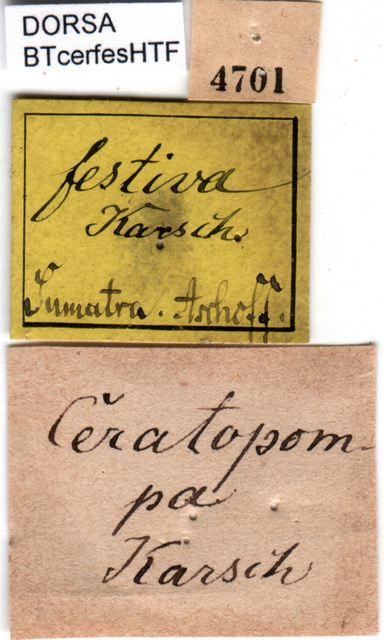 DORSA
BTcerfesHTF
4701
festiva
Karsch.
Sumatra. Aschoff.
Ceratopom-
pa
Karsch